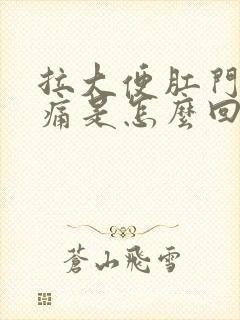 拉大便肛門
痛是怎麼回
蒼山飛雪